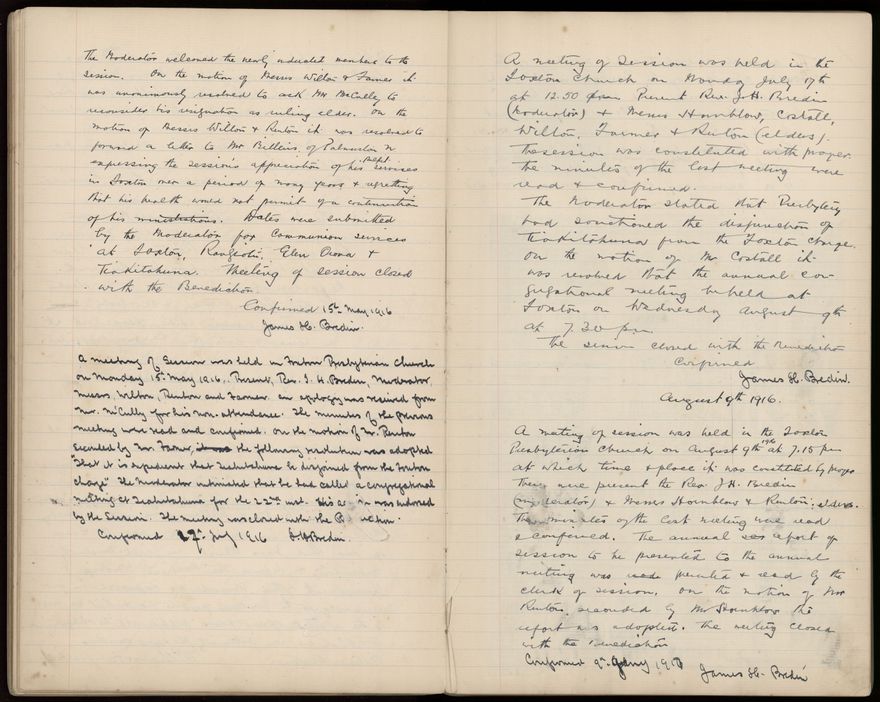 The Moderator welcomed the newly inducted members to the
session. On the motion of Messrs Wilton & Farmer it
was unanimously resolved to ask Mr McCully to
reconsider his resignation as ruling elder. On the
motion of Messrs Wilton & Renton it was resolved to
forward a letter to Mr Billens of Palmerston N
expressing the session's appreciation of his past services
in Foxton over a period of many years & regretting
that his health would not permit of a continuation
of his ministrations. Dates were submitted
by the Moderator for Communion services
at Foxton, Rangiotu, Glen Oroua &
Tiakitahuna. Meeting of session closed
with the Benediction.
Confirmed 15th May 1916
James H. Bredin.
A meeting of Session was held in Foxton Presbyterian Church
on Monday 15th May 1916. Present, Rev. J. H. Bredin, Moderator
Messrs, Wilton, Renton and Farmer. An apology was received from
Mr. McCully for his non-attendance. The minutes of the previous
meeting were read and confirmed. On the motion of Mr. Renton
seconded by Mr. Farmer, the following resolution was adopted
"That it is expedient that Tiakitahuna be disjoined from the Foxton
charge". The Moderator intimated that he had called a congregational
meeting at Tiakitahuna for the 22nd inst. His a n was endorsed
by the Session. The meeting was closed with the B ction.
Confirmed July 1916 J. H. Bredin.
A meeting of Session was held in the
Foxton Church on Monday July 17th
at 12.50 pm Present Rev. J. H. Bredin
(Moderator) & Messrs Hornblow, Costall,
Wilton, Farmer & Renton (elders).
The session was constituted with prayer.
The minutes of the last meeting were
read & confirmed.
The Moderator stated that Presbytery
had sanctioned the disjunction of
Tiakitahuna from the Foxton charge.
On the motion of Mr Costall it
was resolved that the annual con-
gregational meeting be held at
Foxton on Wednesday August 9th
at 7.30 pm.
The session closed with the Benediction
Confirmed
James H. Bredin.
August 9th 1916.
A meeting of session was held in the Foxton
Presbyterian Church on August 9th 1916 at 7.15 pm
at which time & place it was constituted by prayer
There were present the Rev. J. H. Bredin
(moderator) & Messrs Hornblow & Renton, elders.
The minutes of the last meeting were read
& confirmed. The annual report of
session to be presented to the annual
meeting was presented & read by the
clerk of session. On the motion of Mr
Renton, seconded by Mr Hornblow the
report was adopted. The meeting closed
with the Benediction
Confirmed 9th
James H. Bredin